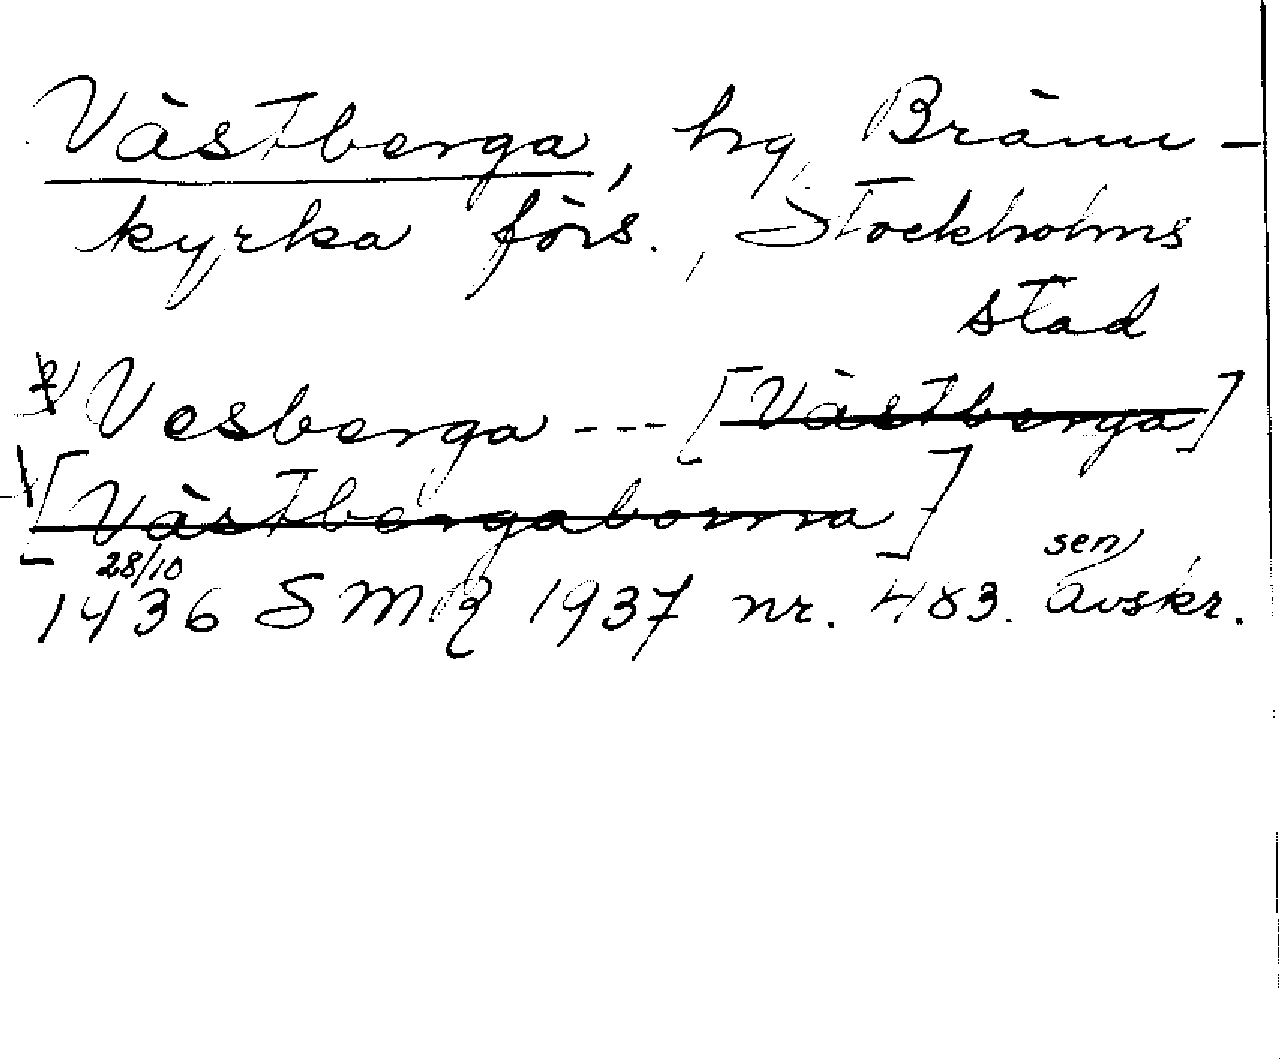 Västberga, hg, Bränn-
kyrka förs., Stockholms
stad
Vesberga --- [Västberga]
[Västbergaborna]
28/10 sen
1436 SMR 1937 nr. 483. avskr.